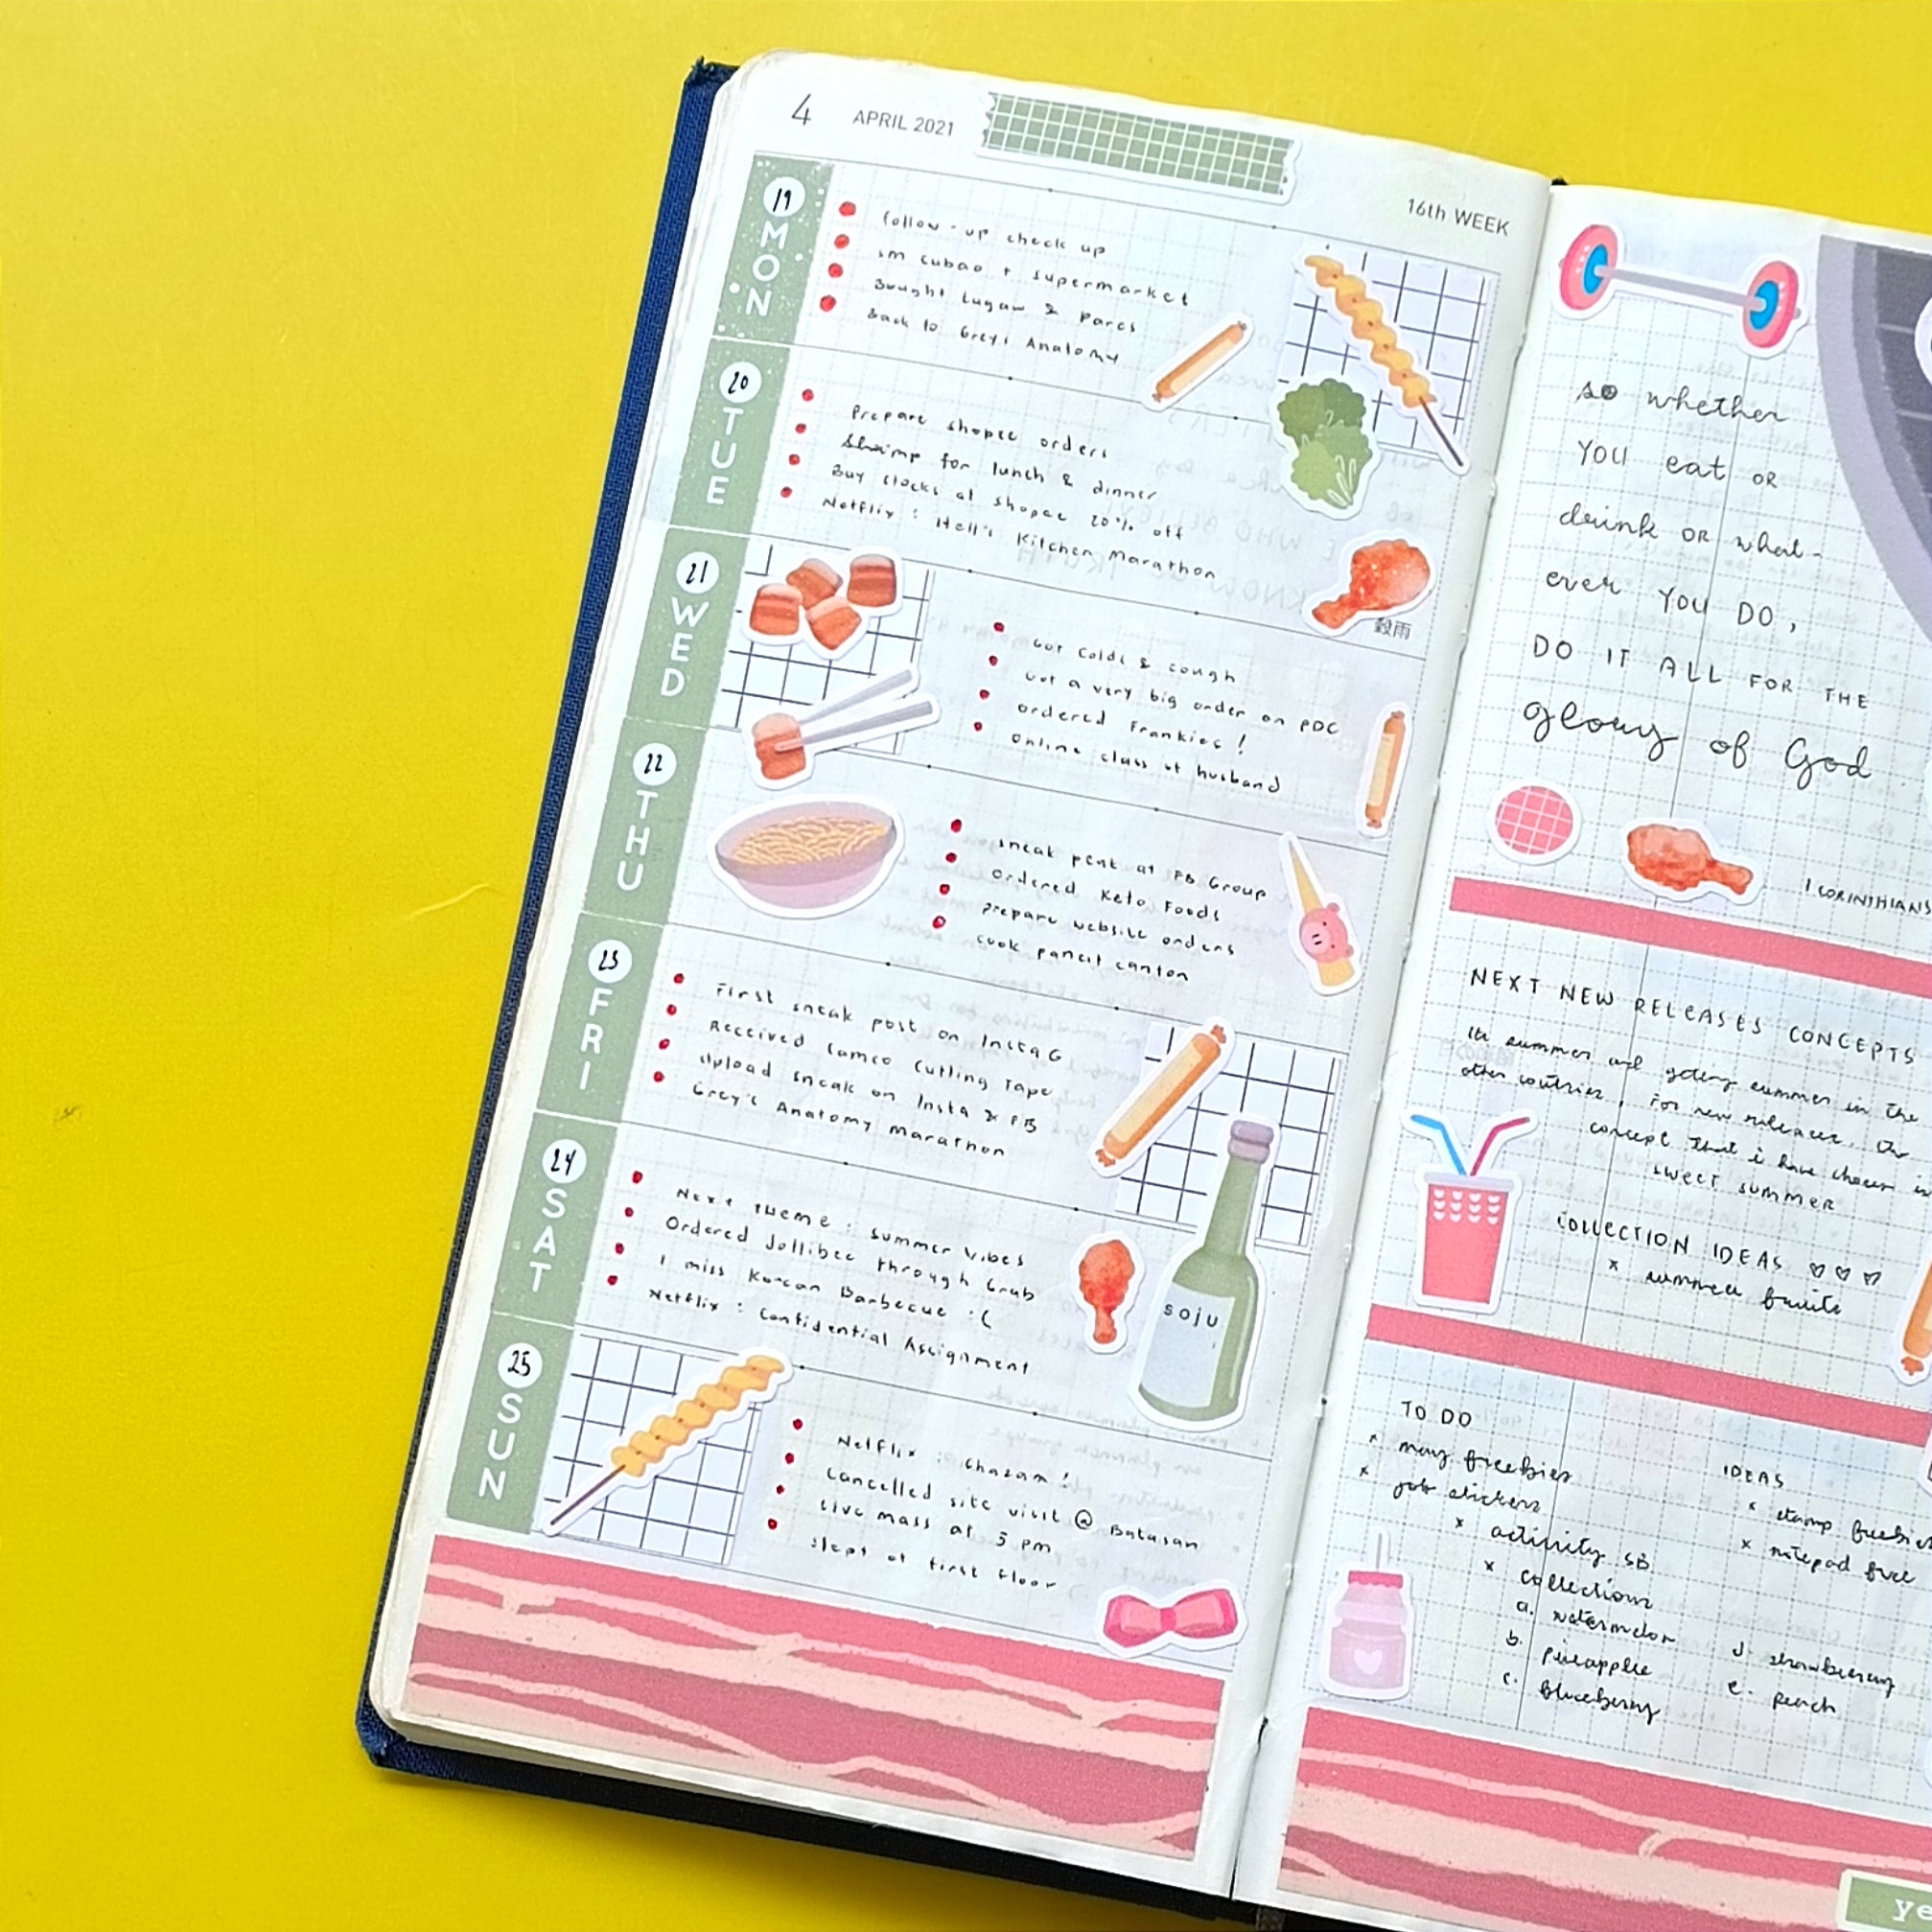 4 APRIL 2021
16th WEEK
19
MON
follow-up check up
sm cubao + supermarket
Bought Lugaw & Pares
Back to Greys Anatomy
20
TUE
Prepare shopee orders
Shrimp for lunch & dinner
Buy stocks at shopee 20% off
Netflix : Hell's Kitchen Marathon
穀雨
21
WED
Got Colds & cough
Got a very big order on PDC
Ordered Frankies !
Online class of husband
22
THU
sneak peak at FB Group
Ordered Keto Foods
prepare website orders
cook pancit canton
23
FRI
First sneak post on Insta G
Received Camco Cutting Tape
Upload sneak on Insta & FB
Grey's Anatomy Marathon
24
SAT
Next theme : Summer Vibes
Ordered Jollibee through Grab
I miss Korean Barbecue :(
Netflix : Confidential Assignment
soju
25
SUN
Netflix : Shazam !
Cancelled site visit @ Batasan
Live mass at 5 pm
Slept at first floor
so whether
YOU eat OR
drink OR what-
ever YOU DO,
DO IT ALL FOR THE
glory of God
1 CORINTHIANS
NEXT NEW RELEASES CONCEPTS
Its summer and getting summer in the
other countries. For new releases, the
concept that i have chosen is
sweet summer
COLLECTION IDEAS ♡♡♡
x summer fruits
TO DO
x may freebies
x job stickers
x activity SB
x collections
a. watermelon
b. pineapple
c. blueberry
d. strawberry
e. peach
IDEAS
x stamp freebies
x notepad free
ye